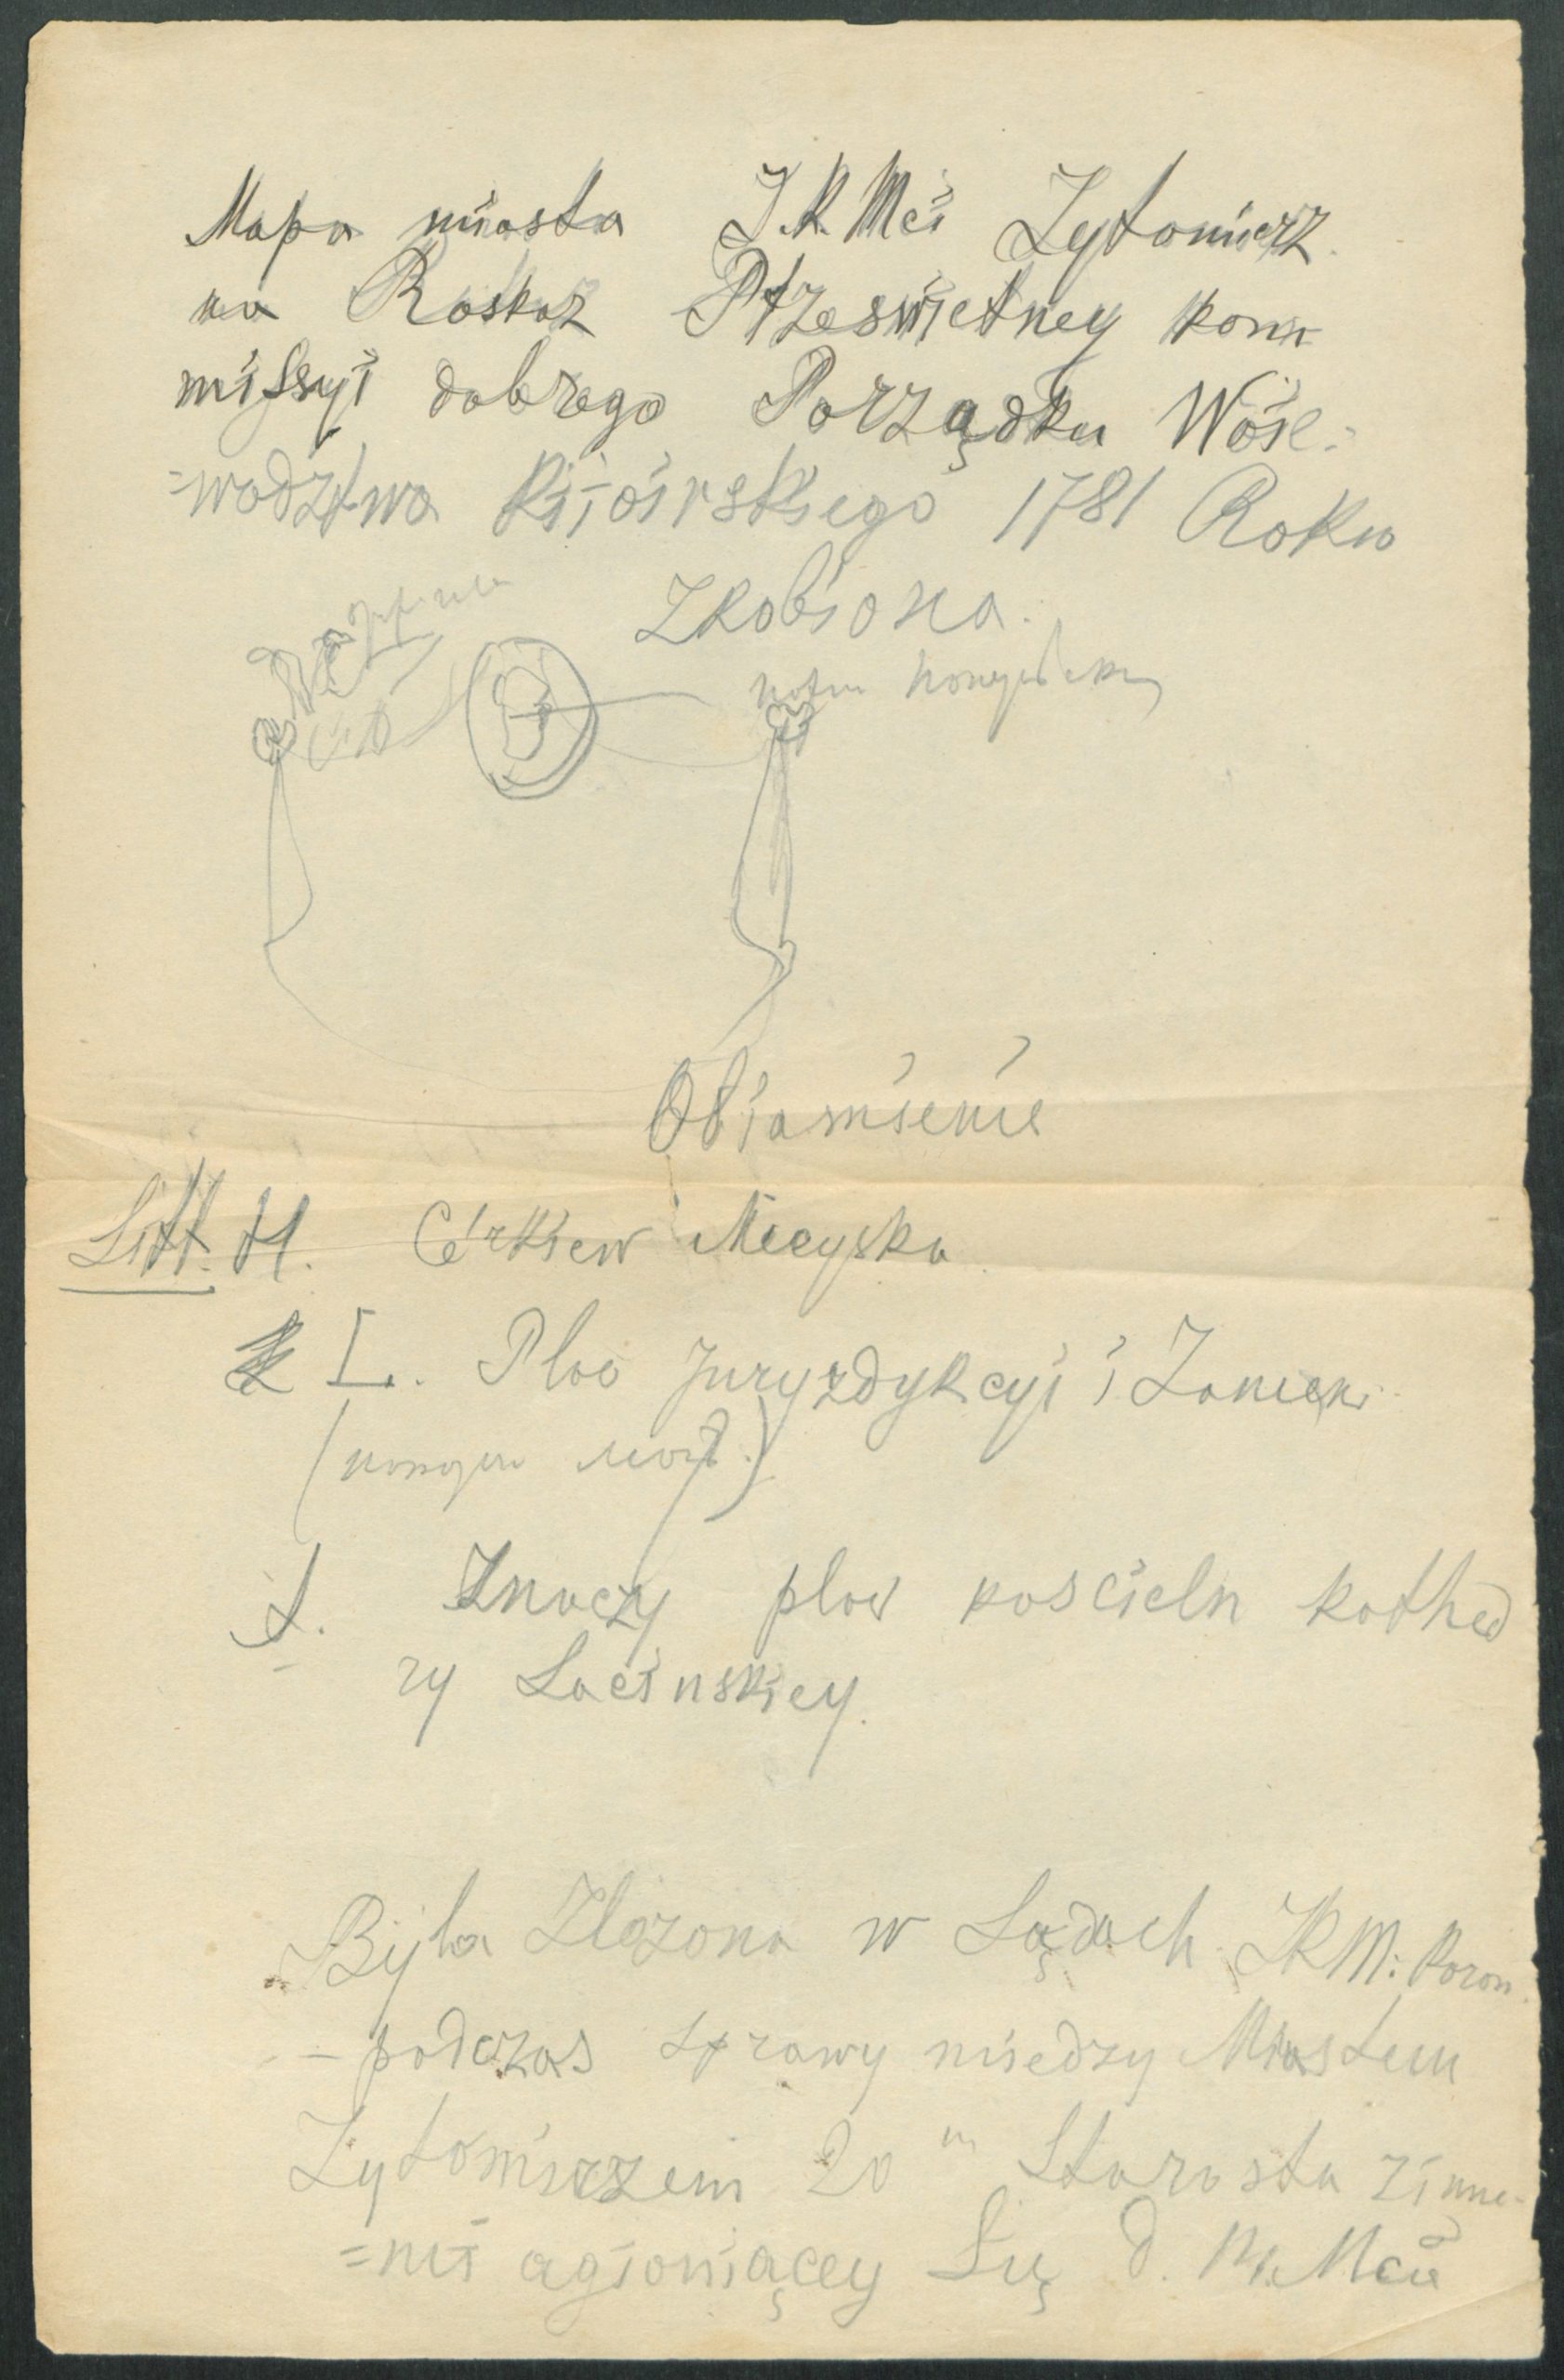 Mapa miasta J.K.Mci Zytomierz
na Roskaz Przeswietney kom
missyi dobrego Porządku Woie=
=wodztwa Kijowskiego 1781 Roku
Zrobiona.
Obiasnienie
Litt. H. Cerkiew Mieyska
I. Plac Juryzdykcyi i Zamek
Znaczy plac koscieln kathed
ry Lacinskiey.
Byla Zlozona w Sądach JKM: Koron
- podczas sprawy miedzy Miastem
Zytomirzem Starosta z inne-
=mi agioniącey Się d. Mcu